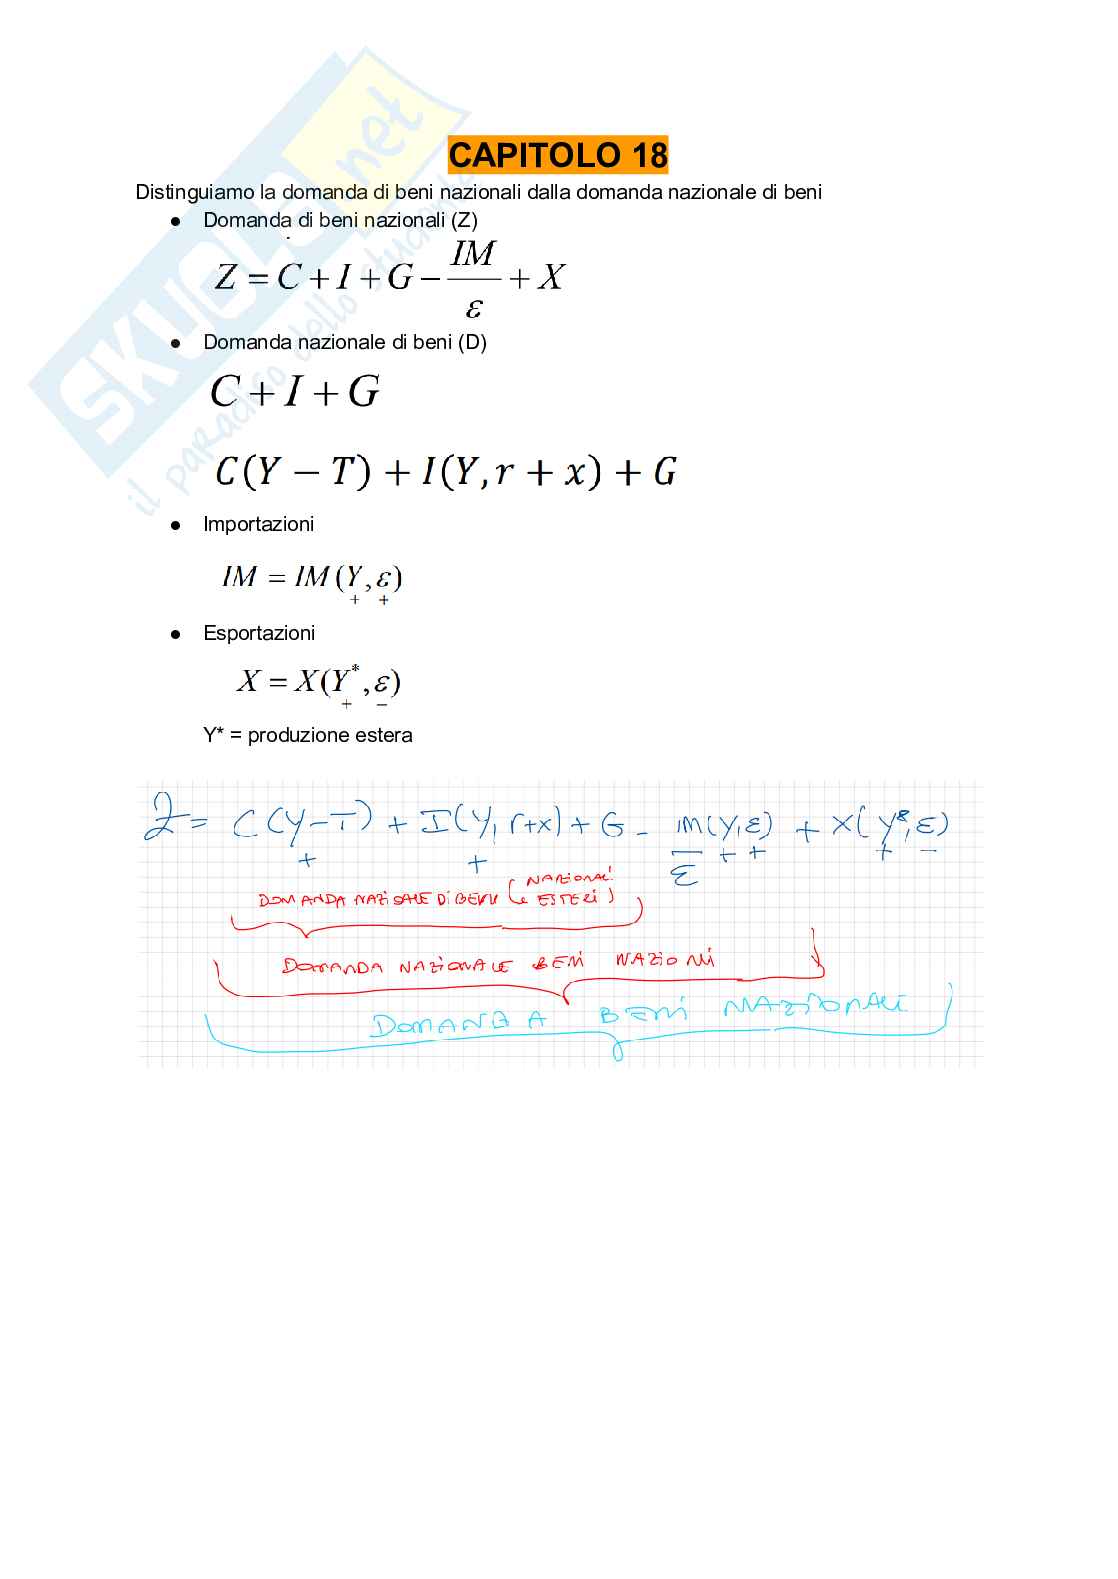 SKUOLA.net
il paradiso dello studente
CAPITOLO 18
Distinguiamo la domanda di beni nazionali dalla domanda nazionale di beni
● Domanda di beni nazionali (Z)
Z = C + I + G − IM/ε + X
● Domanda nazionale di beni (D)
C + I + G
C(Y − T) + I(Y, r + x) + G
● Importazioni
IM = IM(Y, ε)
+ +
● Esportazioni
X = X(Y*, ε)
+ −
Y* = produzione estera
Z = C(Y−T) + I(Y, r+x) + G − IM(Y,ε)/ε + X(Y*, ε)
+ + + + + −
DOMANDA NAZIONALE DI BENI (NAZIONALI e ESTERI)
DOMANDA NAZIONALE BENI NAZIONLI
DOMANDA BENI NAZIONALI